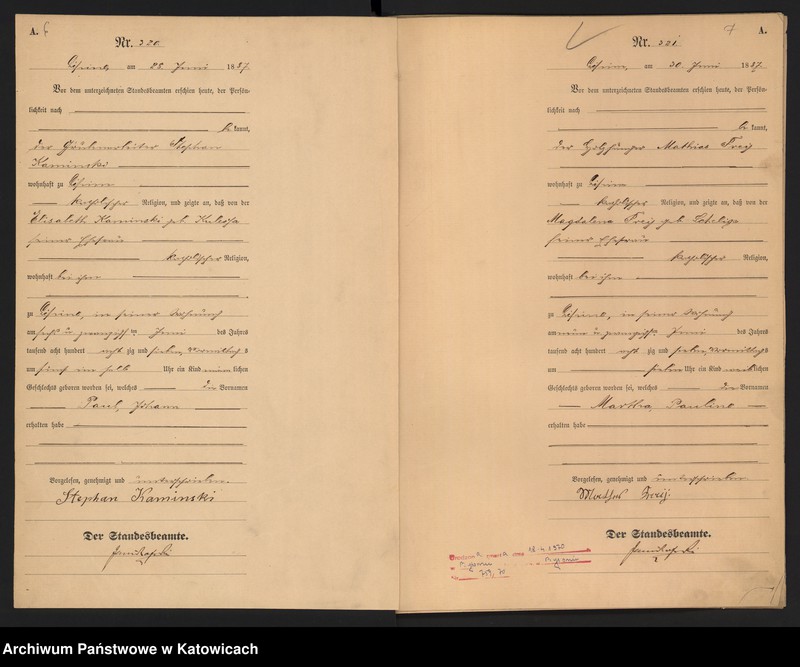 A. 6
Nr. 320
am 28 Juni 1887.
Vor dem unterzeichneten Standesbeamten erschien heute, der Persön-
lichkeit nach
be kannt,
der Stephan
Kaminski
wohnhaft zu
katholischer Religion, und zeigte an, daß von der
Elisabeth Kaminski geb.
seiner Ehefrau
katholischer Religion,
wohnhaft bei ihm
zu in seiner Wohnung
am sechs u zwanzigsten Juni des Jahres
tausend acht hundert acht zig und sieben, Vormittags
um fünf ein halb Uhr ein Kind männ lichen
Geschlechts geboren worden sei, welches die Vornamen
Paul, Johann
erhalten habe
Vorgelesen, genehmigt und unterschrieben.
Stephan Kaminski
Der Standesbeamte.
7 A.
Nr. 321
am 30 Juni 1887.
Vor dem unterzeichneten Standesbeamten erschien heute, der Persön-
lichkeit nach
be kannt,
der Mathias Freij
wohnhaft zu
katholischer Religion, und zeigte an, daß von der
Magdalena Freij geb.
seiner Ehefrau
katholischer Religion,
wohnhaft bei ihm
zu in seiner Wohnung
am neun u zwanzigsten Juni des Jahres
tausend acht hundert acht zig und sieben, Vormittags
um sieben Uhr ein Kind weib lichen
Geschlechts geboren worden sei, welches die Vornamen
Martha, Pauline
erhalten habe
Vorgelesen, genehmigt und unterschrieben.
Freij.
Der Standesbeamte.
18.4.1970
Archiwum Państwowe w Katowicach